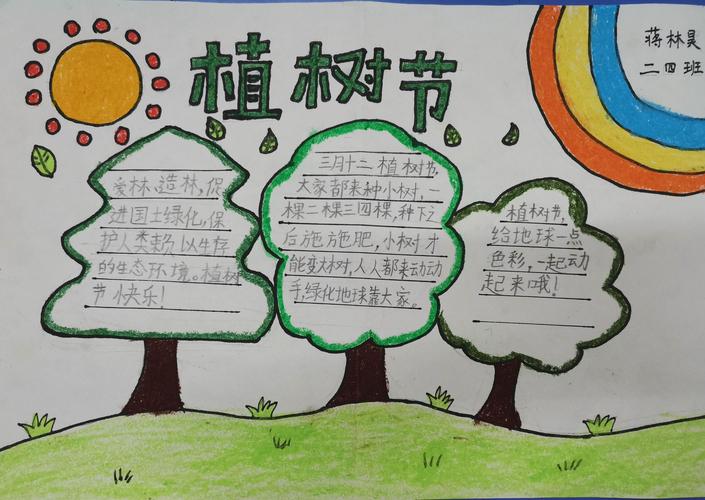 植树节
蒋林昊
二四班
爱林、造林,促
进国土绿化,保
护人类赖以生存
的生态环境。植树
节快乐!
三月十二植树节,
大家都来种小树,一
棵二棵三四棵,种下之
后施施肥,小树才
能变大树,人人都来动动
手,绿化地球靠大家。
植树节,
给地球一点
色彩,一起动
起来哦!